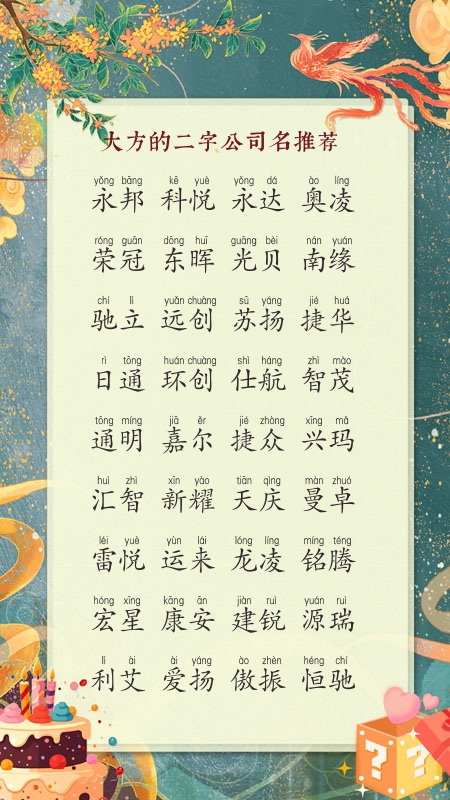 大方的二字公司名推荐
yǒng bāng kē yuè yǒng dá ào líng
永邦 科悦 永达 奥凌
róng guān dōng huī guāng bèi nán yuán
荣冠 东晖 光贝 南缘
chí lì yuǎn chuàng sū yáng jié huá
驰立 远创 苏扬 捷华
rì tōng huán chuàng shì háng zhì mào
日通 环创 仕航 智茂
tōng míng jiā ěr jié zhòng xīng mǎ
通明 嘉尔 捷众 兴玛
huì zhì xīn yào tiān qìng màn zhuó
汇智 新耀 天庆 曼卓
léi yuè yùn lái lóng líng míng téng
雷悦 运来 龙凌 铭腾
hóng xīng kāng ān jiàn ruì yuán ruì
宏星 康安 建锐 源瑞
lì ài ài yáng ào zhèn héng chí
利艾 爱扬 傲振 恒驰
? ?